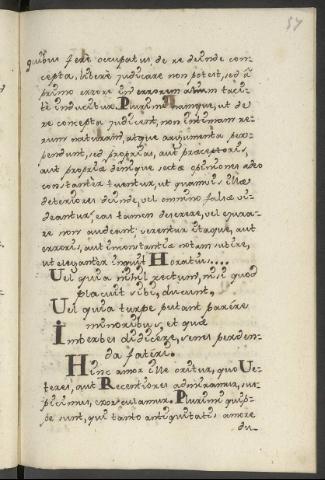 57
quibus ferè occupatus de re deinde con-
cepta, liberè judicare non potest, sed à
primo errore in errorem alium faci-
lè inducitur. Plurimi namque, ut de
re concepta judicent, non intimam re-
rum naturam, atque argumenta perp-
pendunt, sed proprias, aut praeceptoris,
aut propriae denique sectae opiniones adeo
constanter tuentur, ut quamvis illae
deteriores deinde, vel omnino falsae vi-
deantur, eas tamen deserere, vel ejura-
re non audeant: verentur itaque, aut
erroris, aut inconstantiae notam subire,
ut eleganter inquit Horatius....
Vel quia nihil rectum, nisi quod
placuit sibi, ducunt.
Vel quia turpe putant parere
minoribus, et quae
Imberbes didicere, senes perden-
da fateri.
Hinc amor ille oritur, quo Ve-
teres, aut Recentiores admiramur, sus-
picimus, exosculamur. Plurimi quip-
pe sunt, qui tanto antiquitatis amore
du-